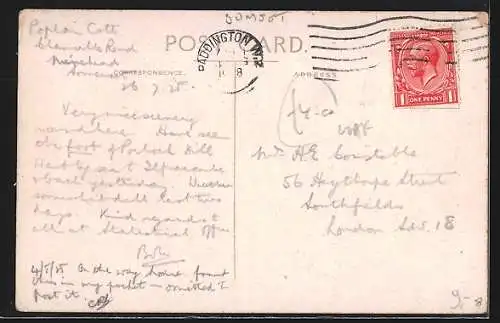 SOMS01
Poplar Cott
Road
Minehead
Somerset
26.7.25.
POST CARD.
PADDINGTON W.2
CORRESPONDENCE.
ADDRESS.
ONE PENNY
1 1
£4-00
Very nice scenery
round here. Have seen
the foot of Porlock Hill
Went by sea to Ilfracombe
& back yesterday. Weather
somewhat dull last two
days. Kind regards to
all at Statistical Office
On the way home found
this in my pocket – omitted to
post it.
Mr A E Constable
56 Heythorpe Street
Southfields
London SW. 18